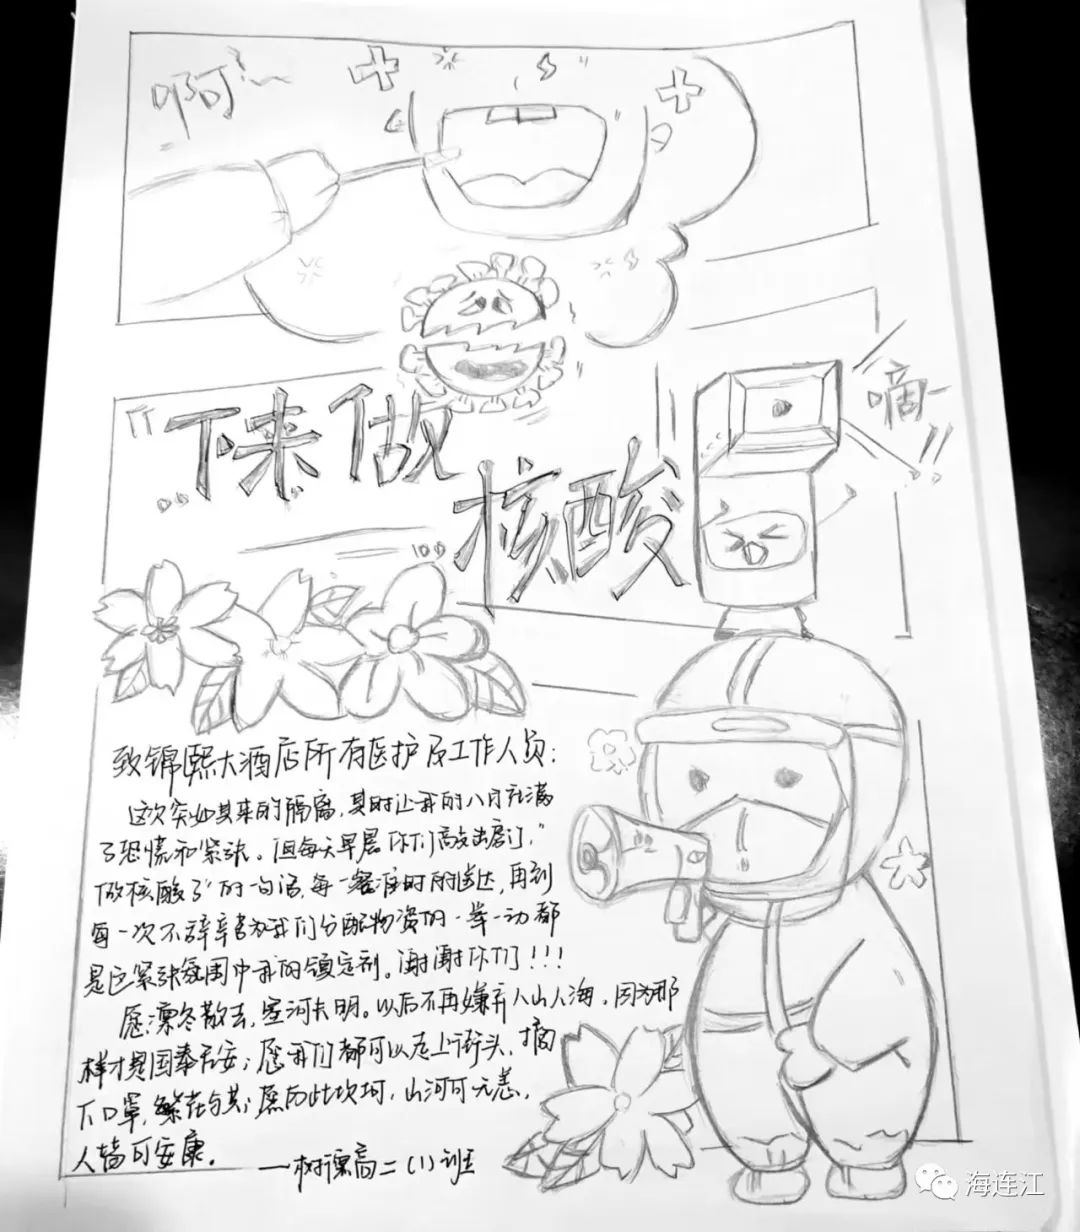 啊~
嘀—!!
"下来做
核酸
致锦熙大酒店所有医护及工作人员:
这次突如其来的隔离,其时让我的八月充满
了恐慌和紧张。但每天早晨你们敲击房门,"
做核酸了"的一句话,每一餐准时的送达,再到
每一次不辞辛苦为我们分配物资的一举一动都
是这紧张氛围中我的镇定剂。谢谢你们!!!
愿凛冬散去,星河长明。以后不再嫌弃人山人海,因为那
样才是国泰民安;愿我们都可以走上街头,摘
下口罩,繁花与共;愿历此坎坷,山河可无恙,
人皆可安康。
—树德高二(1)班
海连江